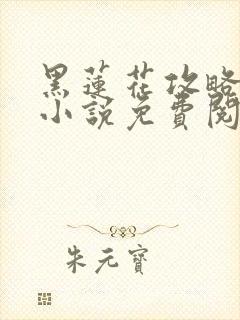 黑蓮花攻略
小說免費閱
朱元寶